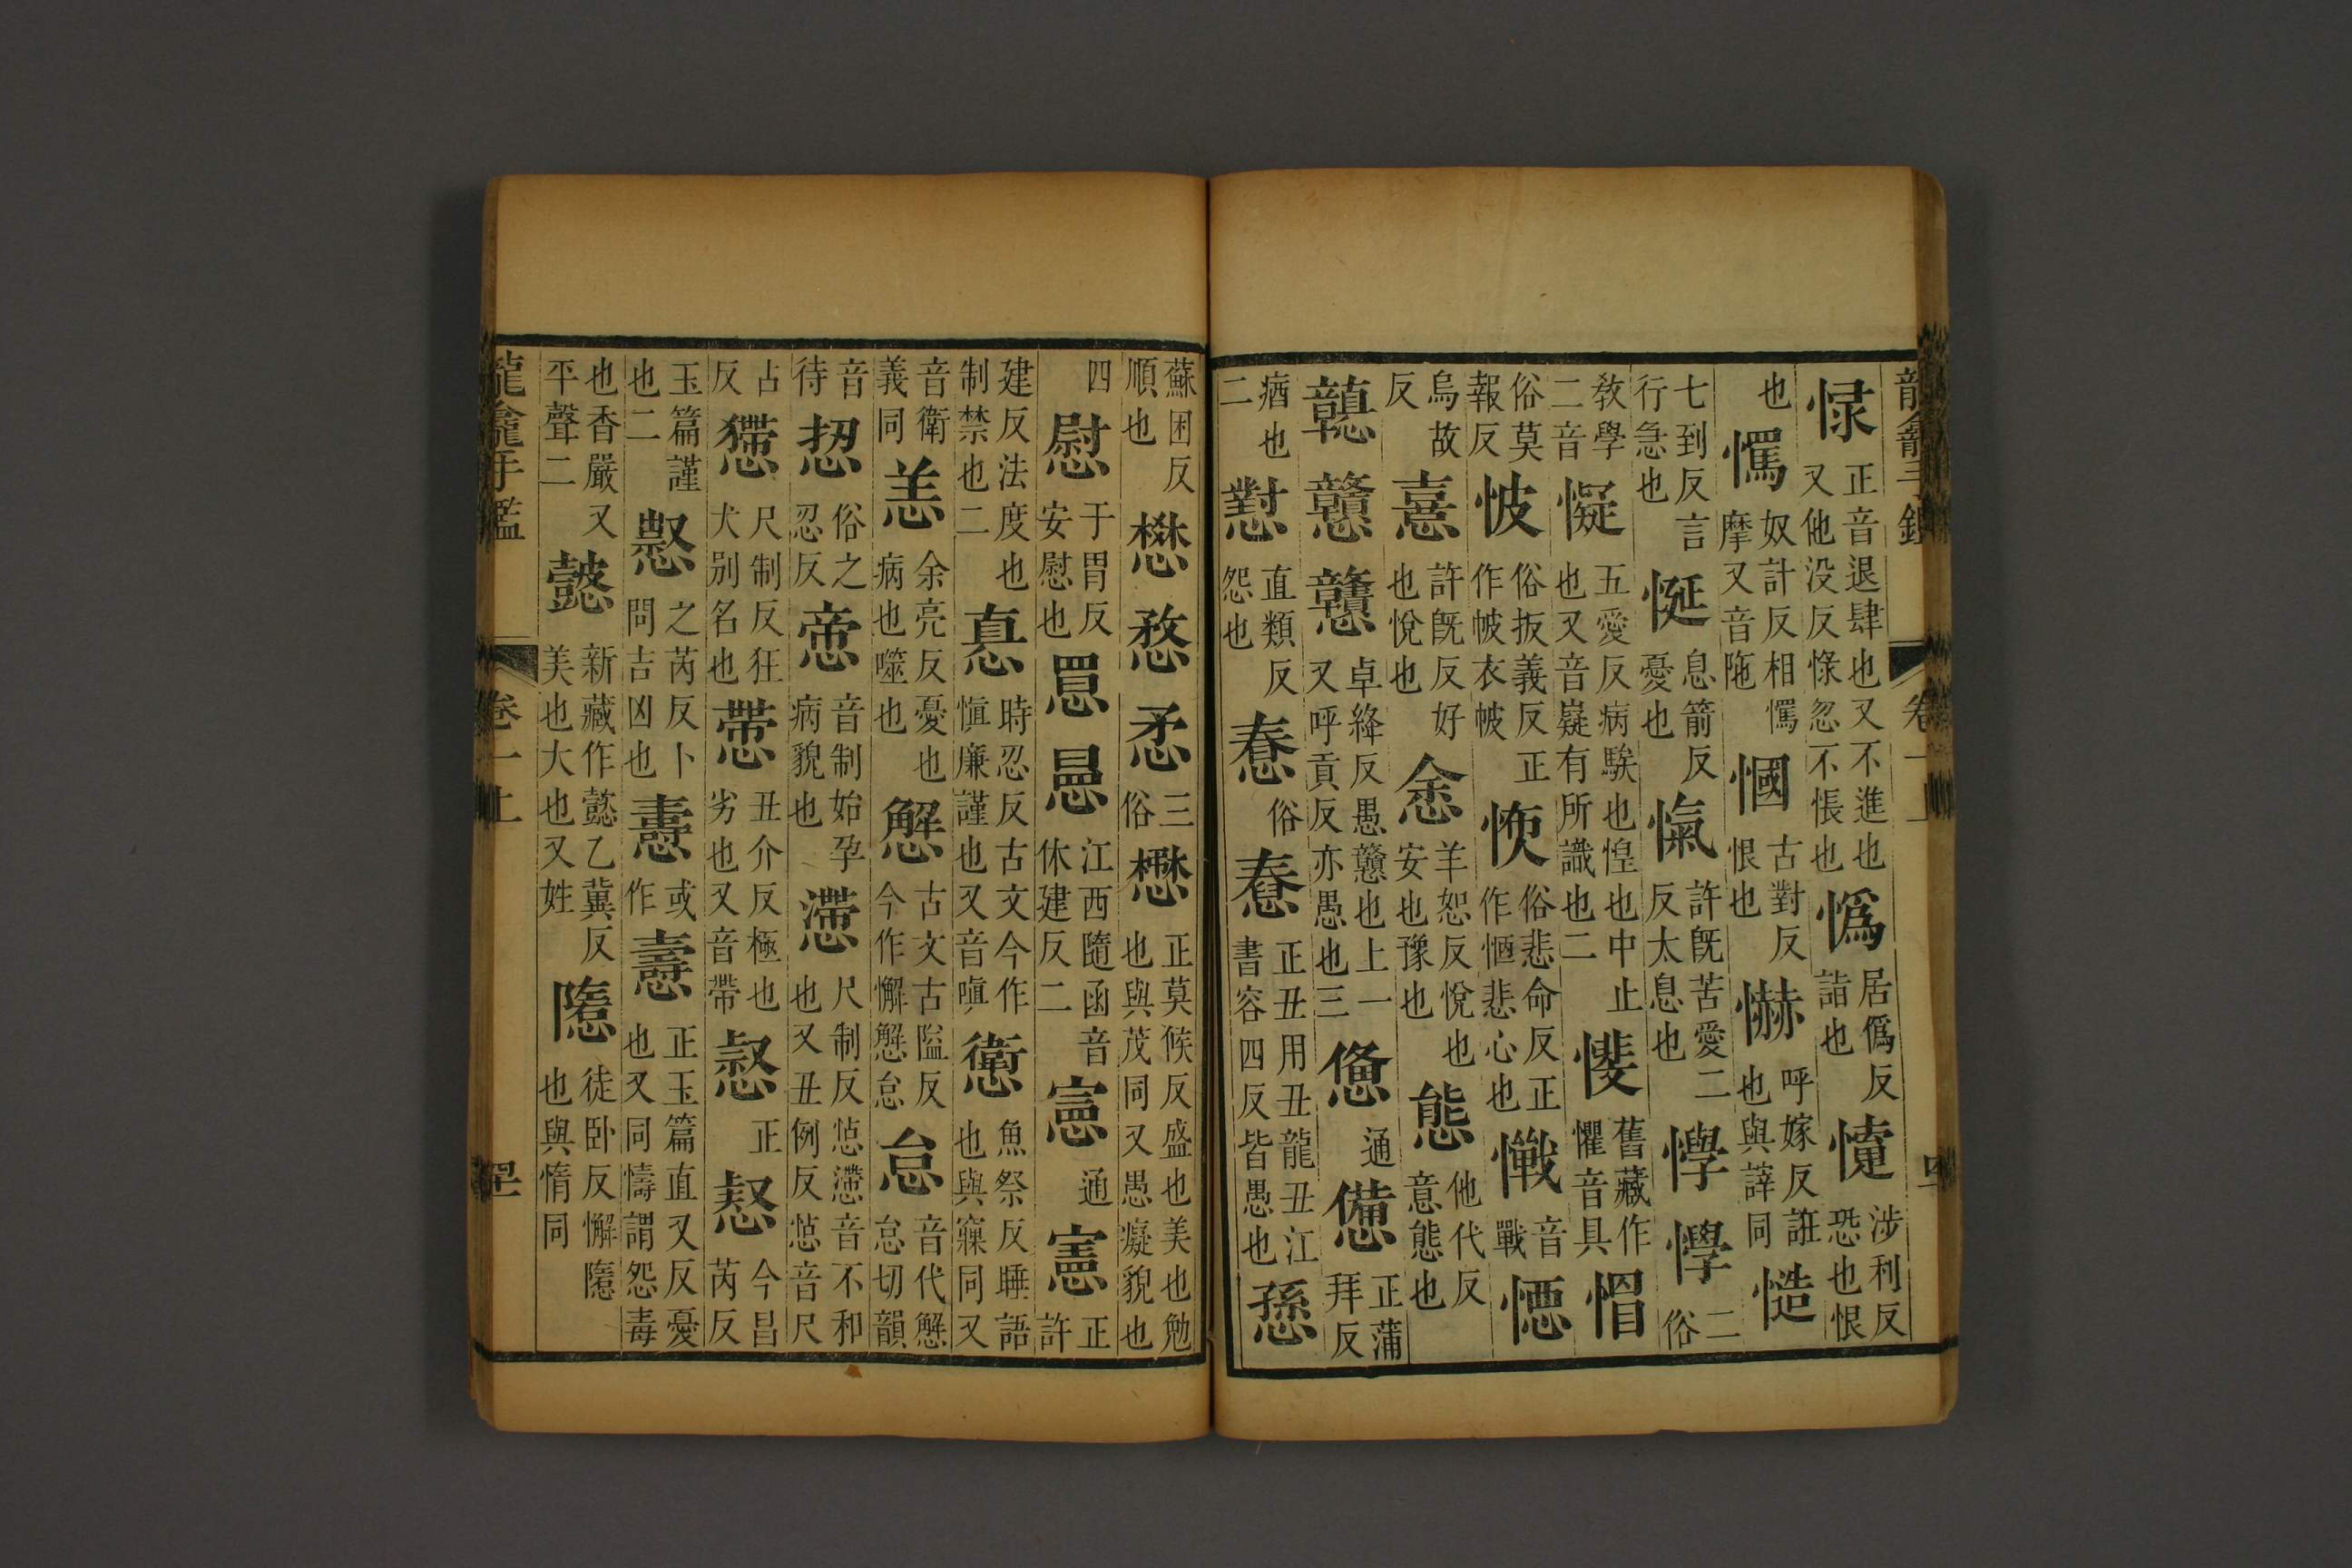 龍龕手鑑 卷一上
㥆 正音退肆也又不進也又他没反㥆忽不悵也 憍 居僞反詣也 懥 涉利反恐也恨
也 㦐 奴計反相㦐摩又音陁 慖 古對反恨也 㦦 呼嫁反誑也與謑同 慥
七到反言行急也 㦌 息箭反憂也 愾 許旣苦愛二反太息也 㦡 㦡 二俗
教學二音 懝 五愛反病騃也惶也又音嶷有所識也二 㥬 舊藏作懼音具 㥚
俗莫報反 怶 俗扳義反正作帔衣帔 㤥 俗悲命反正作恓悲心也 㦧 音戰 㥶
烏故反 憙 許旣反好也悅也 悆 羊恕反悅也安也豫也 態 他代反意態也
戇 戇 戇 卓絳反愚戇也上一又呼貢反亦愚也三 㤳 通 憊 正蒲拜反
㾭也二 懟 直類反怨也 惷 俗 憃 正丑用丑龍丑江書容四反皆愚也 愻
蘇困反順也 懋 愗 㤽 三俗 懋 正莫候反盛也美也勉也與茂同又愚癡貌也
四 慰 于胃反安慰也 㥯 㥯 江西隨函音休建反二 㦥 通 憲 正許
建反法度也制禁也二 㥲 時忍反古文今作愼廉謹也又音嗔 㦣 魚祭反睡語也與寱同又
音衛義同 恙 余亮反憂也病也噬也 懈 古文古隘反今作懈懈怠 怠 音代懈怠切韻
音待 㤂 俗之忍反 㥴 音制始孕病貌也 㦅 尺制反㤐㦅音不和也又丑例反㤐音尺
占反 㦅 尺制反狂犬別名也 㦅 丑介反極也劣也又音帶 㥽 正 㥽 今昌芮反
玉篇謹也二 㥽 之芮反卜問吉凶也 㦞 或作 㦞 正玉篇直又反憂也又同懤謂怨毒
也香嚴又平聲二 懿 新藏作懿乙冀反美也大也又姓 㥩 徒卧反懈㥩也與惰同
龍龕手鑑 卷一上